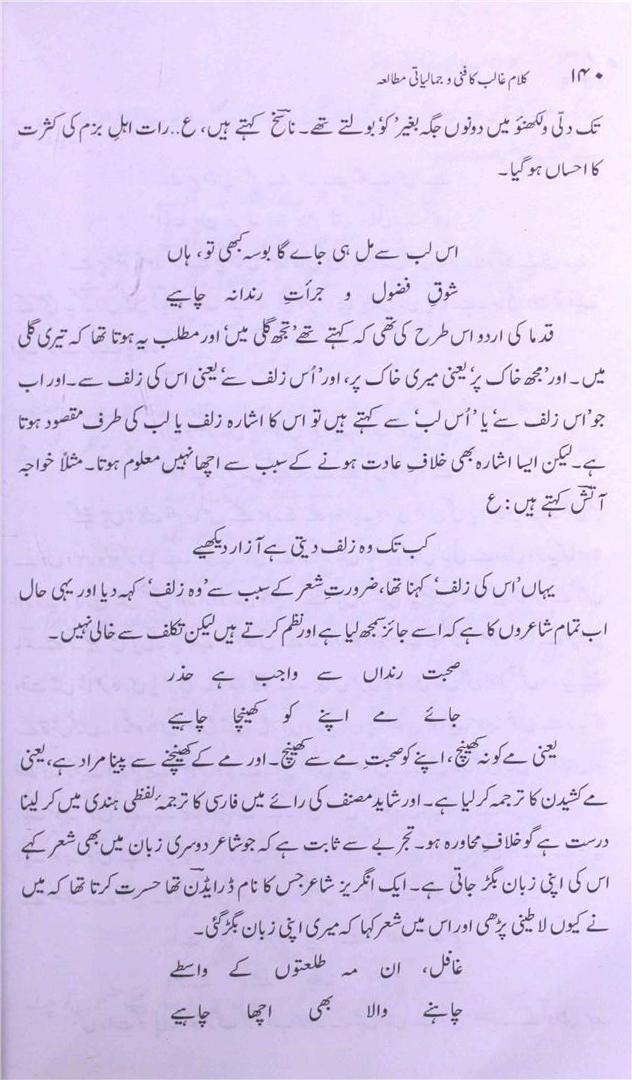 ۱۴۰ کلام غالب کا فنی و جمالیاتی مطالعہ
تک دلّی و لکھنؤ میں دونوں جگہ بغیر 'کو' بولتے تھے۔ ناسخؔ کہتے ہیں، ع.. رات اہلِ بزم کی کثرت
کا احساں ہو گیا۔
اس لب سے مل ہی جاے گا بوسہ کبھی تو، ہاں
شوقِ فضول و جرأتِ رندانہ چاہیے
قدما کی اردو اس طرح کی تھی کہ کہتے تھے 'تجھ گلی میں' اور مطلب یہ ہوتا تھا کہ تیری گلی
میں۔ اور 'مجھ خاک پر' یعنی میری خاک پر، اور 'اُس زلف سے' یعنی اس کی زلف سے۔ اور اب
جو 'اس زلف سے' یا 'اُس لب' سے کہتے ہیں تو اس کا اشارہ زلف یا لب کی طرف مقصود ہوتا
ہے۔ لیکن ایسا اشارہ بھی خلافِ عادت ہونے کے سبب سے اچھا نہیں معلوم ہوتا۔ مثلاً خواجہ
آتشؔ کہتے ہیں: ع
کب تک وہ زلف دیتی ہے آزار دیکھیے
یہاں 'اس کی زلف' کہنا تھا، ضرورتِ شعر کے سبب سے 'وہ زلف' کہہ دیا اور یہی حال
اب تمام شاعروں کا ہے کہ اسے جائز سمجھ لیا ہے اور نظم کرتے ہیں لیکن تکلف سے خالی نہیں۔
صحبت رنداں سے واجب ہے حذر
جائے مے اپنے کو کھینچا چاہیے
یعنی مے کو نہ کھینچ، اپنے کو صحبتِ مے سے کھینچ۔ اور مے کے کھینچنے سے پینا مراد ہے، یعنی
مے کشیدن کا ترجمہ کر لیا ہے۔ اور شاید مصنف کی رائے میں فارسی کا ترجمۂ لفظی ہندی میں کر لینا
درست ہے گو خلافِ محاورہ ہو۔ تجربے سے ثابت ہے کہ جو شاعر دوسری زبان میں بھی شعر کہے
اس کی اپنی زبان بگڑ جاتی ہے۔ ایک انگریز شاعر جس کا نام ڈرایڈنؔ تھا حسرت کرتا تھا کہ میں
نے کیوں لاطینی پڑھی اور اس میں شعر کہا کہ میری اپنی زبان بگڑ گئی۔
غافل، ان مہ طلعتوں کے واسطے
چاہنے والا بھی اچھا چاہیے